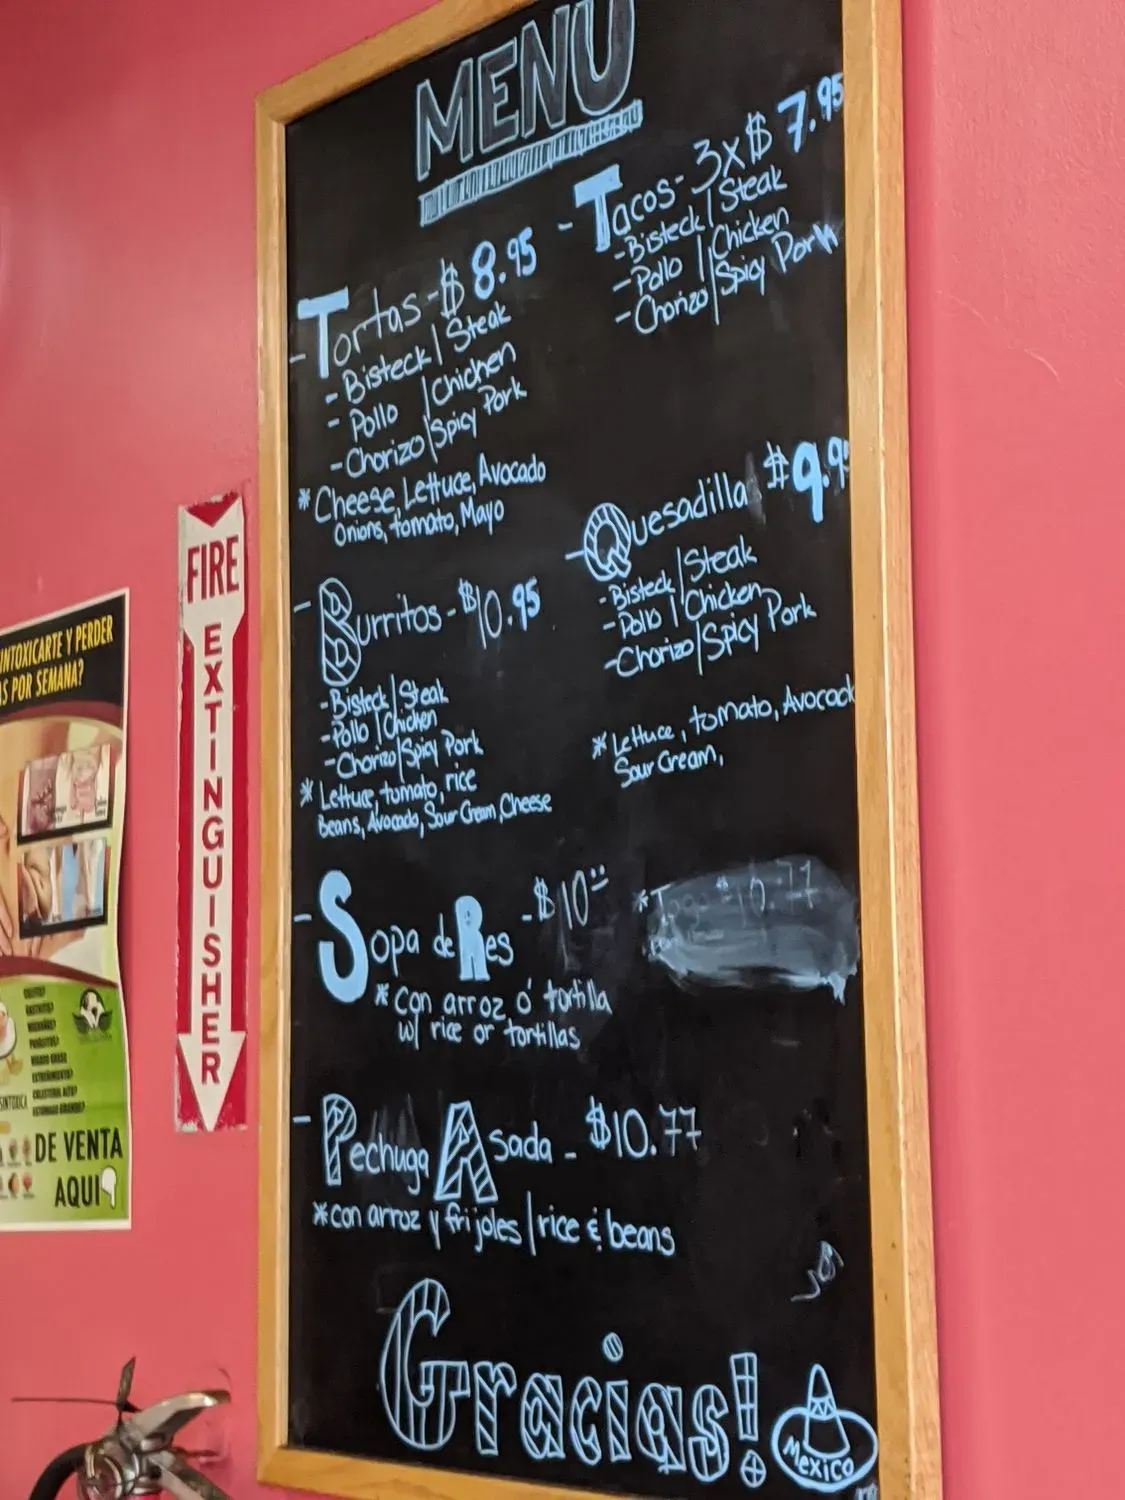 MENU
- Tortas - $8.95
- Bisteck | Steak
- Pollo | Chicken
- Chorizo | Spicy Pork
* Cheese, Lettuce, Avocado
Onions, tomato, Mayo
- Tacos - 3x$7.95
- Bisteck | Steak
- Pollo | Chicken
- Chorizo | Spicy Pork
- Burritos - $10.95
- Bisteck | Steak
- Pollo | Chicken
- Chorizo | Spicy Pork
* Lettuce, tomato, rice
Beans, Avocado, Sour Cream, Cheese
- Quesadilla $9.9
- Bisteck | Steak
- Pollo | Chicken
- Chorizo | Spicy Pork
* Lettuce, tomato, Avocad
Sour Cream,
- Sopa de Res - $10
* con arroz ó tortilla
w/ rice or tortillas
$10.77
- Pechuga Asada - $10.77
* con arroz y frijoles | rice & beans
Gracias!
MEXICO
FIRE
EXTINGUISHER
INTOXICARTE Y PERDER
S POR SEMANA?
DE VENTA
AQUI